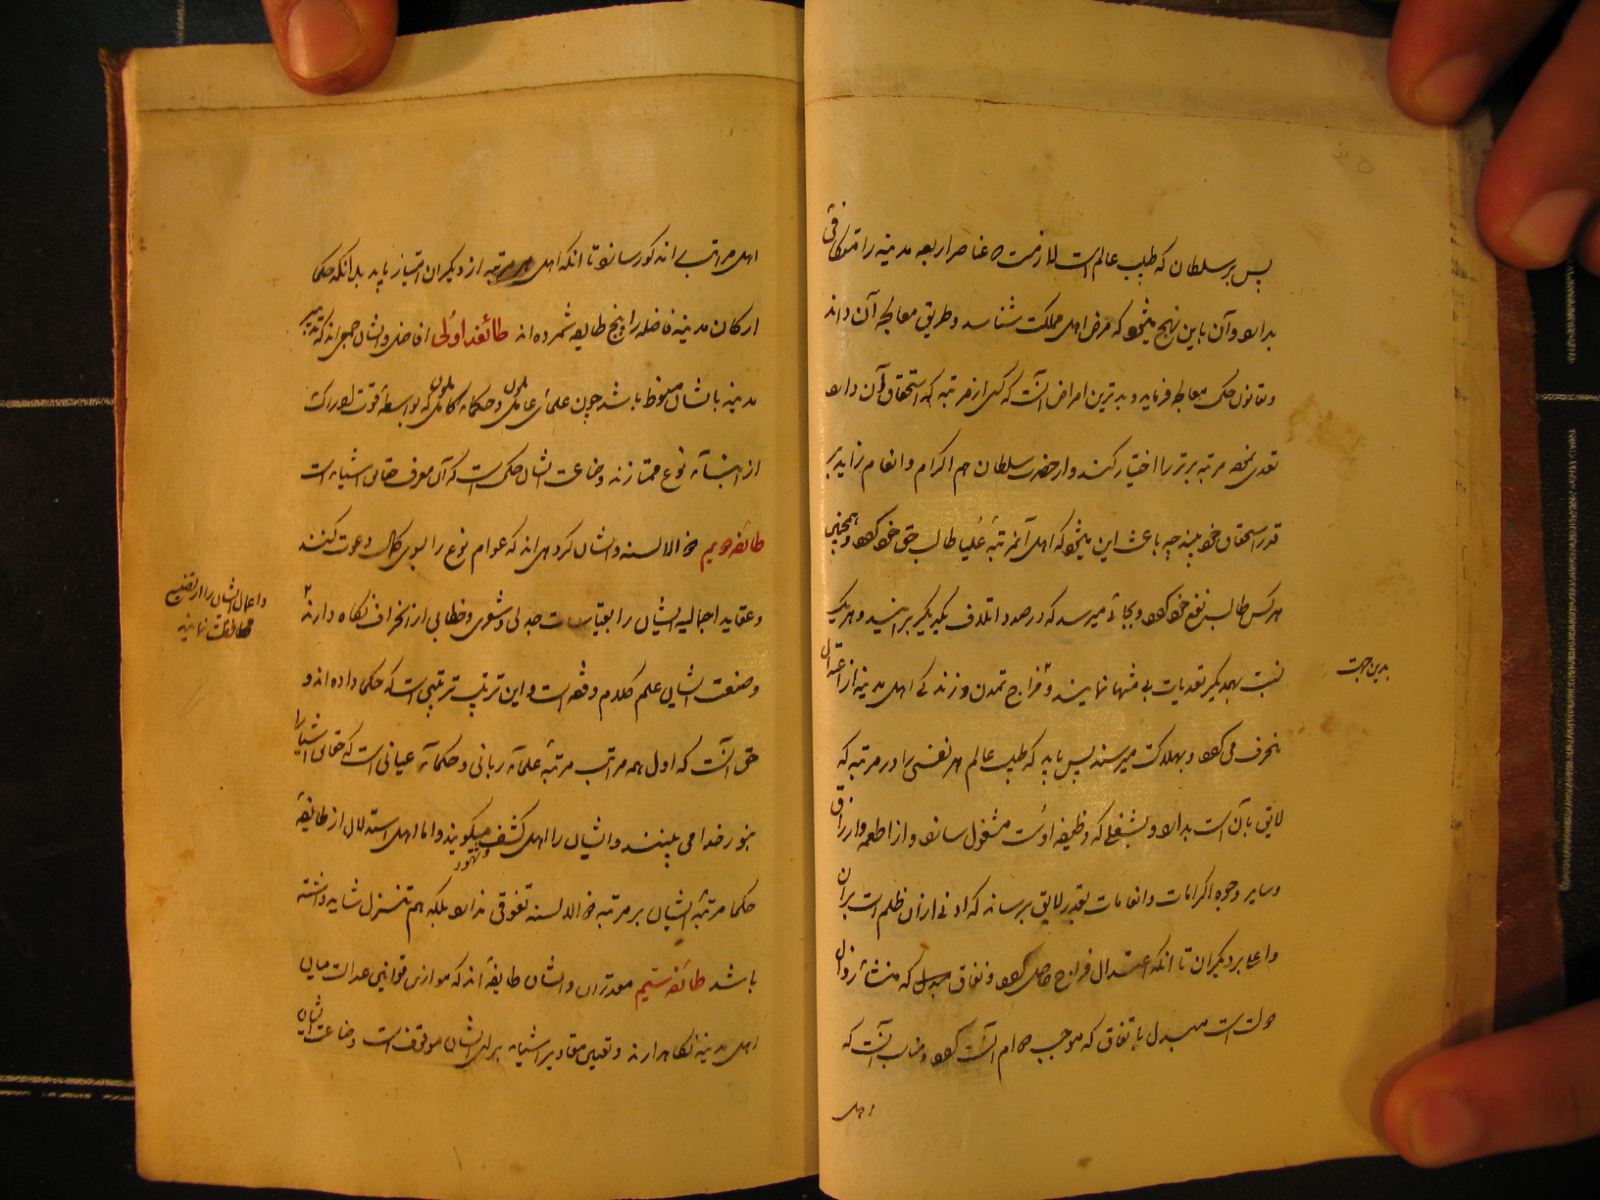 پس بر سلطان که طبیب عالم است لازمست که عناصر اربعه مدینه را متکافی
بدارد و آن باین نهج میشود که مرض اهل مملکت شناسد و طریق معالجه آن داند
و بقانون حکمت معالجه فرماید و بدترین امراض آنست که کسی از مرتبه که استحقاق آن دارد
تعدی نموده مرتبه برتر را اختیار کند و از حضرت سلطان هم اکرام و انعام زاید بر
قدر استحقاق خود بیند چه باعث این میشود که اهل آنمرتبه علیا طالب حق خود شود و همچنین
هرکس طالب نفع خود شود و بجائی میرسد که در صدد اتلاف یکدیگر برآیند و هر یک
بدین جهت
نسبت بهمدیگر تعدیات بی منتها نمایند و مزاج تمدن و زندگی اهل مدینه از اعتدال
منحرف می شود و بهلاکت میرسند پس باید که طبیب عالم هر نفسی را در مرتبه که
لایق بآن است بدارد و بشغلی که وظیفه اوست مشغول سازد و از اطعمه و ارزاق
و سایر وجوه اکرامات و انعامات بقدر لایق برساند که ادنی از آن ظلم است بر آن
و اعلا بر دیگران تا آنکه اعتدال مزاج حاصل شود و نفاق که منشاء زوال
دولت است مبدل باتفاق که موجب دوام آنست شود و مناسب آنست که
اهل
اهل مراتب اند کور سازد تا آنکه اهل هر مرتبه از دیگران امتیاز یابد بدانکه حکما
ارکان مدینه فاضله را پنج طایفه شمرده اند طائفه اولی افاضل و ایشان جمعی اند که تدبیر
مدینه بایشان منوط باشد چون علمای عامل و حکمای کامل که بواسطه قوت ادراک
از ابنآء نوع ممتازند و صناعت ایشان حکمی است که آن معرفت حقایق اشیاء است
طائفه دویم ذو الالسنه و ایشان گروهی اند که عوام نوع را بسوی کمال دعوت کنند
و عقاید اجمالیه ایشان را بقیاسات جدلی و شعری و خطابی از انحراف نگاه دارند
و اعمال ایشان را از تضییع
محافظت نمایند
و صنعت ایشان علم کلام و فقه است و این ترتیب ترتیبی است که حکما داده اند و
حق آنست که اول همه مراتب مرتبه علمآء ربانی و حکمآء عیانی است که حقایق اشیا را
بنور خدا می بینند و ایشان را اهل کشف و شهود میگویند و اما اهل استدلال از طایفه
حکما مرتبه ایشان بر مرتبه ذو الالسنه تفوقی ندارد بلکه هم تنزل شاید داشته
باشد طائفه سیم مقدران و ایشان طایفه اند که موازین قوانین عدالت مابین
اهل مدینه نگاهدارند و تعیین مقادیر اشیاء برای ایشان موقوف است و صناعت ایشان